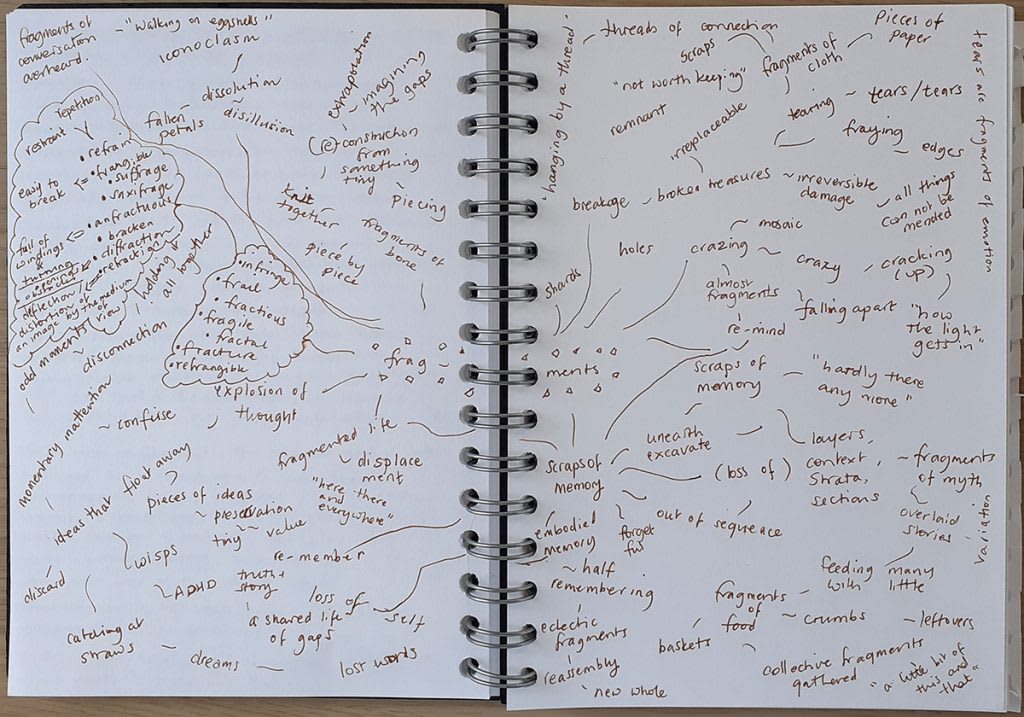 fragments of
conversation
overheard.
"walking on eggshells"
iconoclasm
dissolution
disillusion
fallen
petals
extrapolation
imagining
the gaps
(re)construction
from
something
tiny
piecing
knit
together
piece by
piece
fragments of
bone
repetition
restraint
• refrain
easy to
break
• frangible
• suffrage
• saxifrage
• anfractuous
full of
windings
&
turnings
• bracken
• diffraction
• refraction
deflection /
distortion of
an image by the medium
of view
holding it
all together
odd moments
disconnection
momentary mantion
• infringe
• frail
• fractious
• fragile
• fractal
• fracture
• refrangible
frag ~
explosion of
thought
confuse
fragmented life
displace
ment
"here there
and
everywhere"
ideas that float away
pieces of ideas
preservation
tiny ~ value
re-member
wisps
discard
ADHD
truth +
story
a shared life
of gaps
loss of
self
catching at
straws
dreams
lost words
"hanging by a thread"
threads of connection
scraps
"not worth keeping"
fragments of
cloth
Pieces of
paper
remnant
irreplaceable
tearing ~ tears/tears
fraying
edges
tears are fragments of emotion
breakage - broken treasures ~ irreversible
damage
all things
can not be
mended
shards
holes
crazing
mosaic
crazy
cracking
(up)
almost
fragments
falling apart
"how
the light
gets in"
re-mind
ments
scraps of
memory
"hardly there
any more"
unearth
excavate
scraps of
memory
(loss of)
layers,
context,
strata,
sections
fragments
of myth
overlaid
stories
variation
embodied
memory
forget
ful
out of sequence
half
remembering
eclectic
fragments
reassembly
"new whole
fragments
of
food
feeding many
with little
crumbs
leftovers
baskets
collective fragments
gathered
"a little bit of
this and
that"